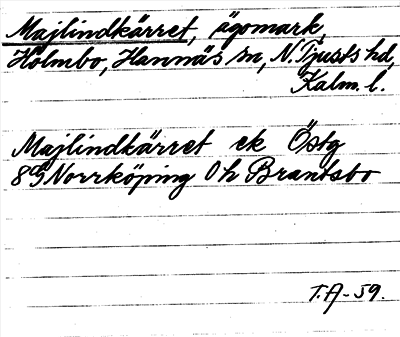 Majlindkärret, ägomark,
Holmbo, Hannäs sn, N. Tjusts hd,
Kalm. l.
Majlindkärret ek Östg
8G Norrköping 0h Brantsbo
T.A-59.